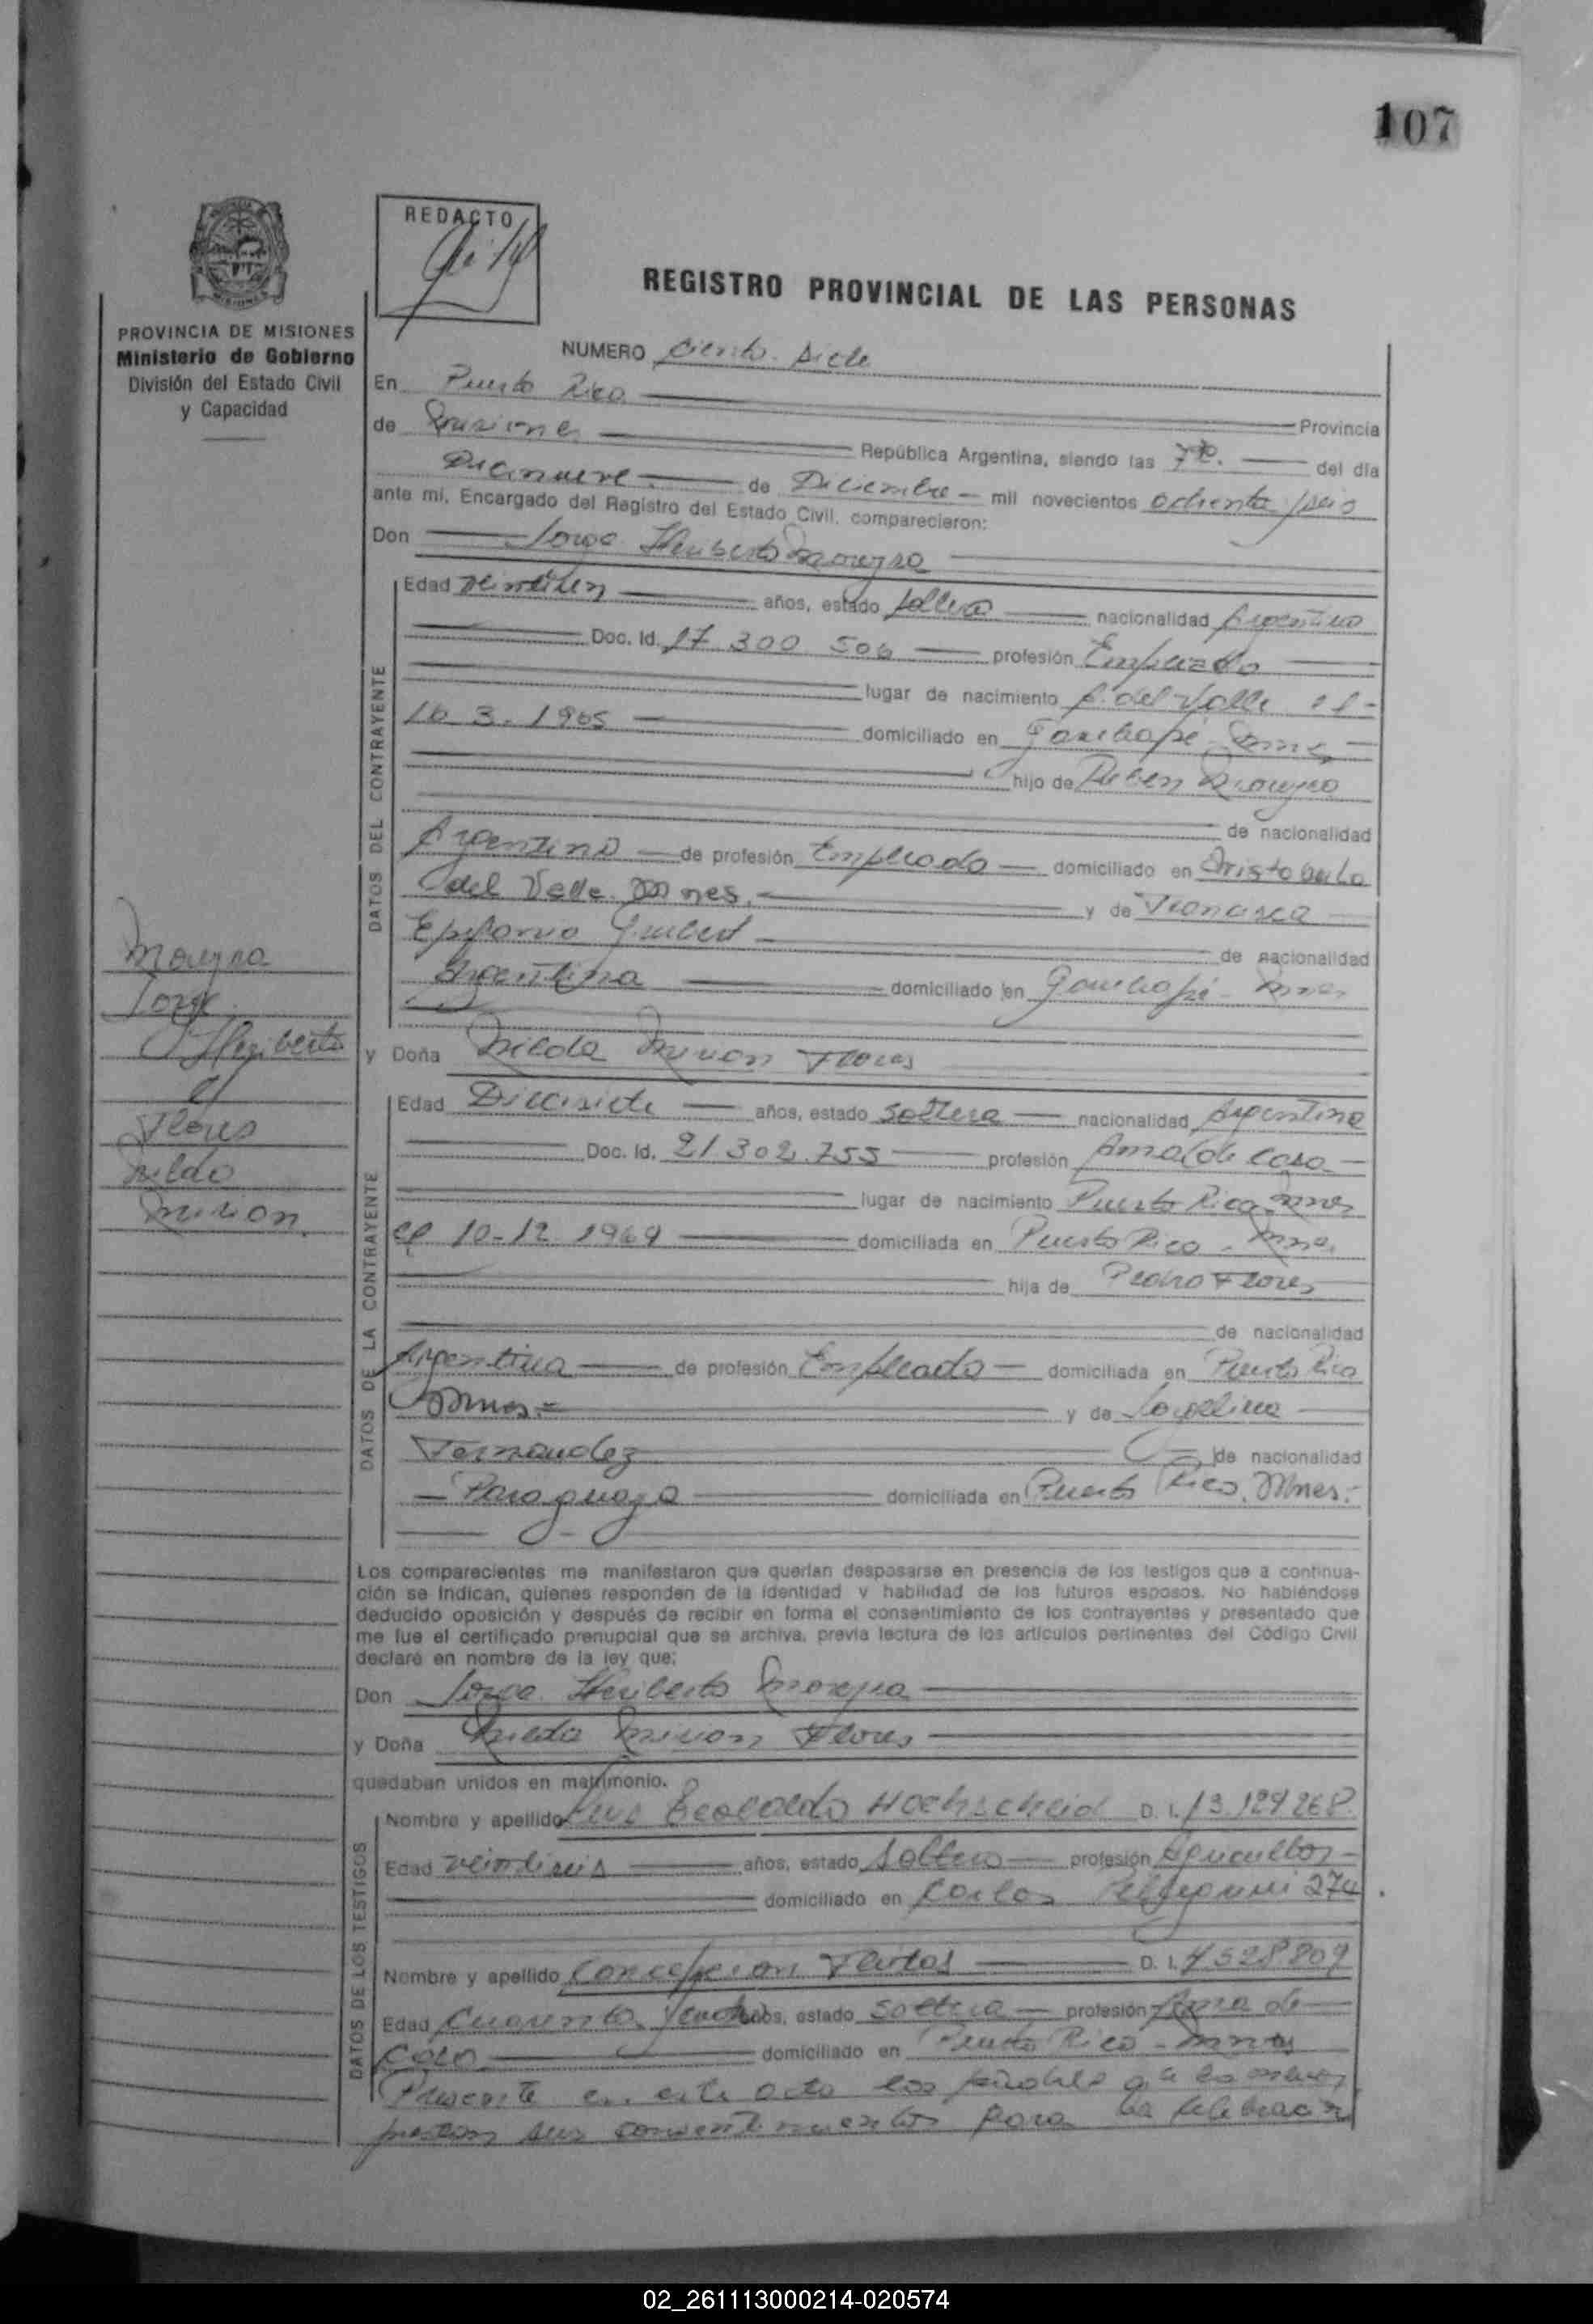 107
REDACTO
REGISTRO PROVINCIAL DE LAS PERSONAS
PROVINCIA DE MISIONES
Ministerio de Gobierno
División del Estado Civil
y Capacidad
NUMERO Ciento Siete
En Puerto Rico Provincia
de Misiones República Argentina, siendo las del día
Diecinueve de Diciembre mil novecientos ochenta y seis
ante mí, Encargado del Registro del Estado Civil, comparecieron:
Don Jorge Heriberto Moreyra
DATOS DEL CONTRAYENTE
Edad años, estado soltero nacionalidad Argentino
Doc. Id. 17 300 506 profesión Empleado
lugar de nacimiento A. del Valle el
16 3. 1965 domiciliado en Garuhapé Mnes
hijo de Ruben Moreyra
de nacionalidad
Argentino de profesión Empleado domiciliado en Aristobulo
del Valle. Mnes. y de
Epifania de nacionalidad
Argentina domiciliado en Garuhapé - Mnes
y Doña Nilda Mirion Flores
Moreyra
Jorge
Heriberto
c/
Flores
Nilda
Mirion
DATOS DE LA CONTRAYENTE
Edad Diecisiete años, estado Soltera nacionalidad Argentina
Doc. Id. 21.302.755 profesión Ama de casa
lugar de nacimiento Puerto Rico Mnes
el 10-12 1969 domiciliada en Puerto Rico - Mnes
hija de Pedro Flores
de nacionalidad
Argentina de profesión Empleado domiciliada en Puerto Rico
Mnes.= y de
Fernandez de nacionalidad
Paraguaya domiciliada en Puerto Rico, Mnes.-
Los comparecientes me manifestaron que querían desposarse en presencia de los testigos que a continua-
ción se indican, quienes responden de la identidad y habilidad de los futuros esposos. No habiéndose
deducido oposición y después de recibir en forma el consentimiento de los contrayentes y presentado que
me fue el certificado prenupcial que se archiva, previa lectura de los artículos pertinentes del Código Civil
declaré en nombre de la ley que:
Don Jorge Heriberto Moreyra
y Doña Nilda Mirion Flores
quedaban unidos en matrimonio.
DATOS DE LOS TESTIGOS
Nombre y apellido Hochscheid D. I. 13.129268
Edad veintiseis años, estado Soltero profesión Agricultor
domiciliado en Carlos Pellegrini 274
Nombre y apellido Concepcion D. I. 4528809
Edad Cuarenta años, estado Soltera profesión Ama de
Casa domiciliado en Puerto Rico - Mnes
Presente en este acto los
prestan sus consentimientos para la celebración
02_261113000214-020574